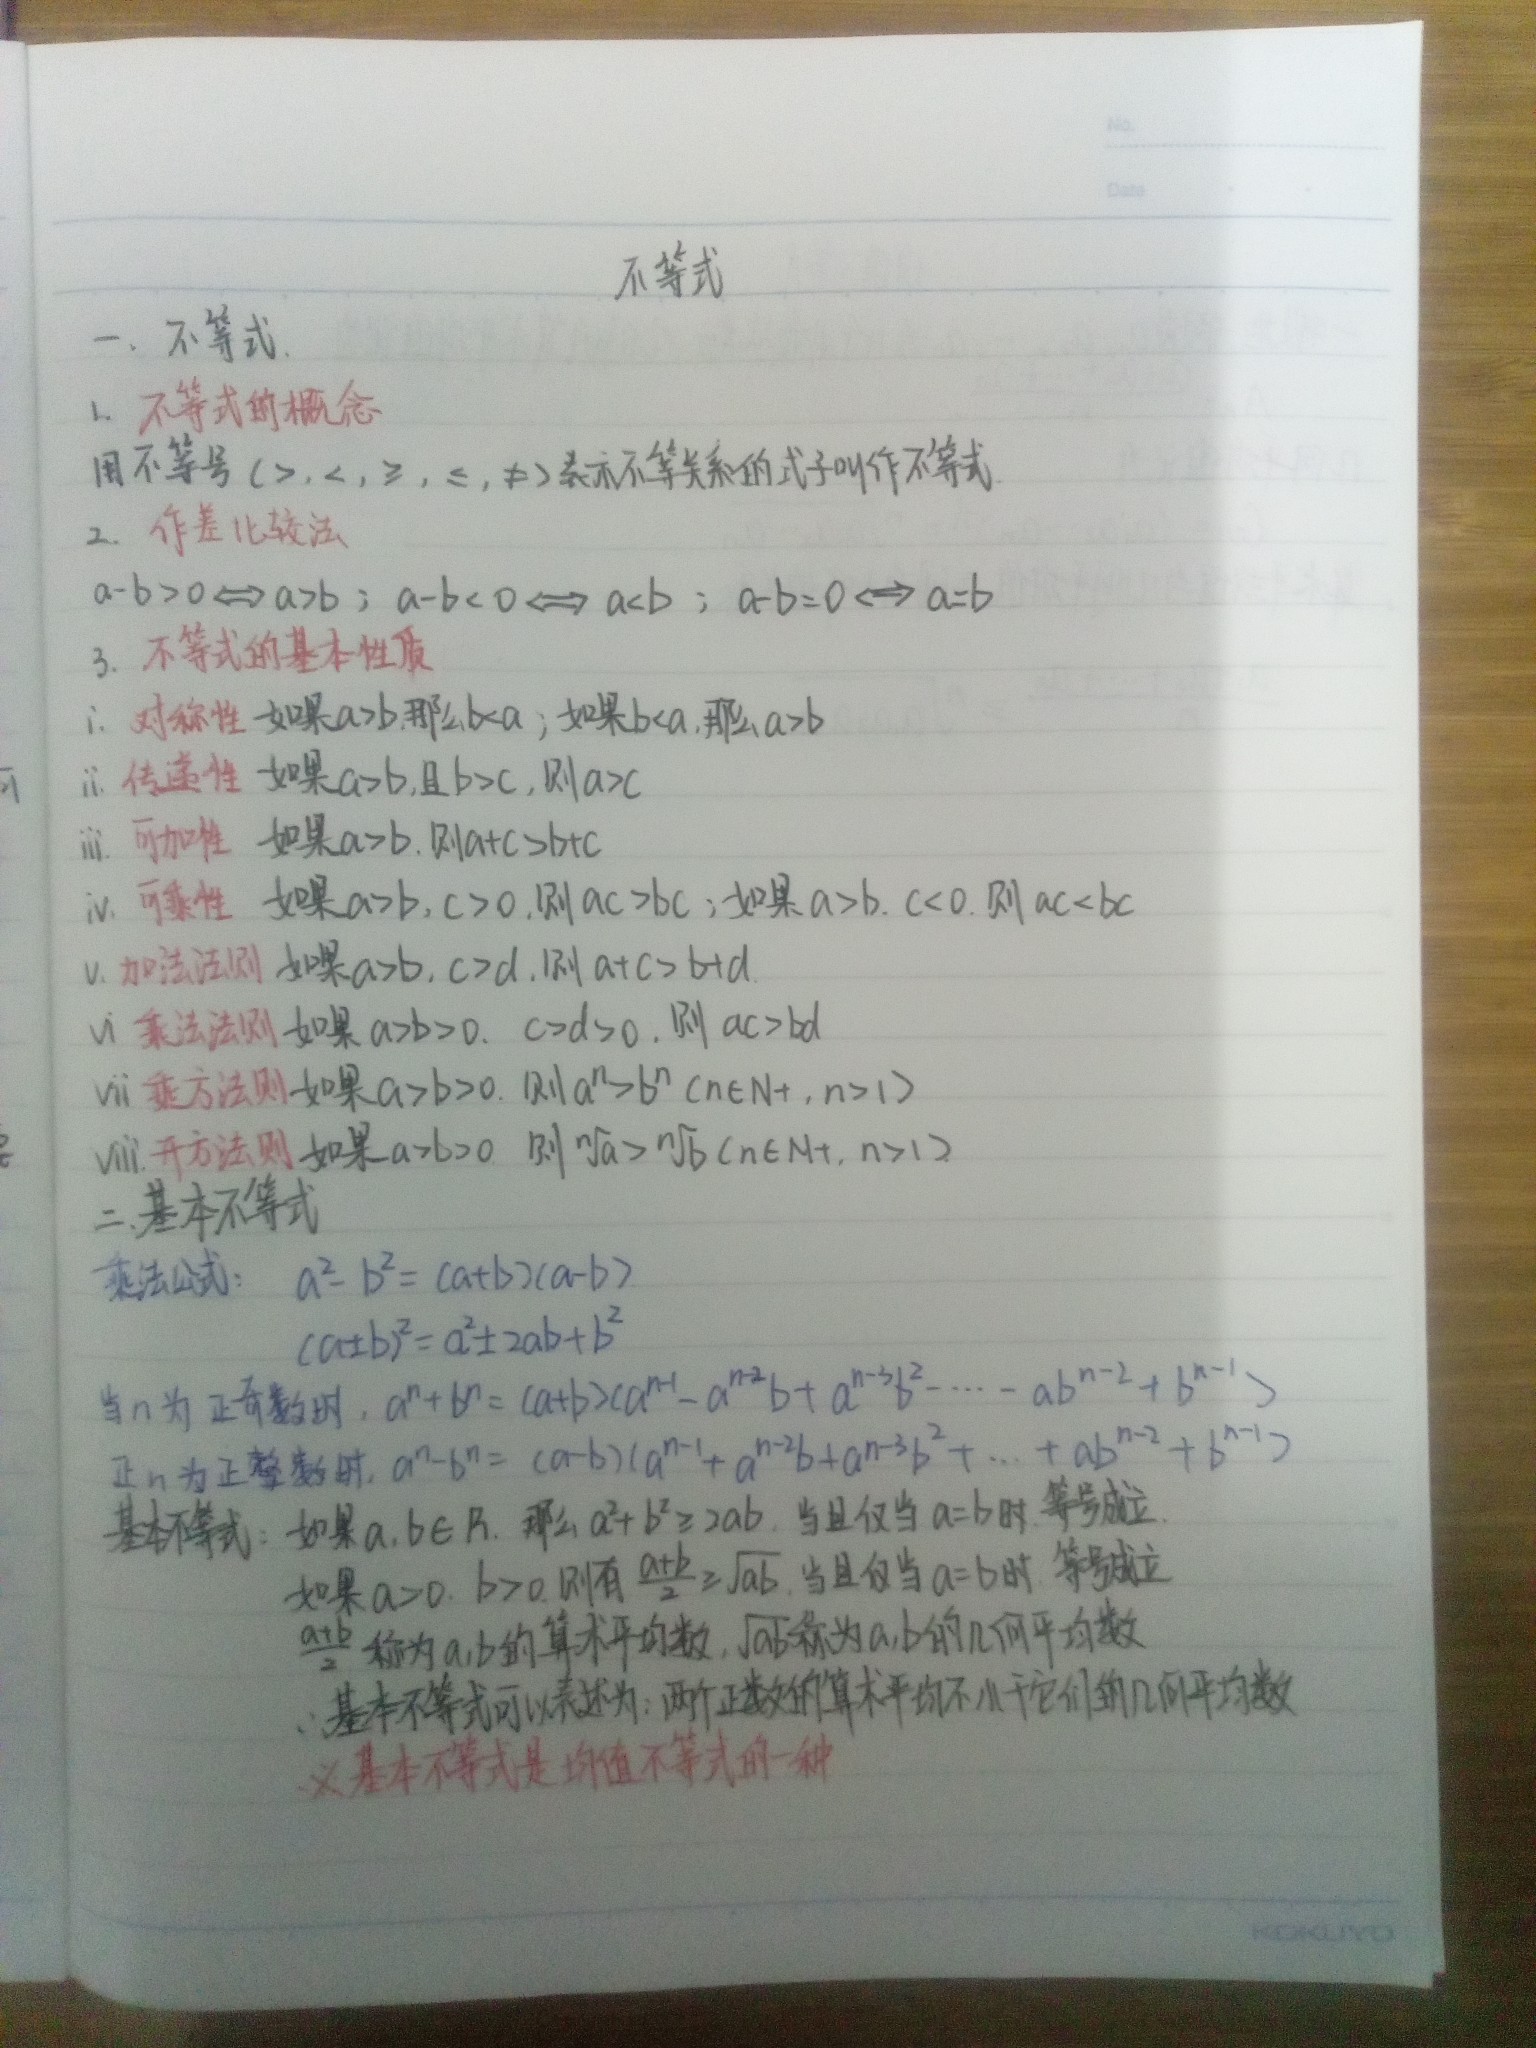 No.
Date
不等式
一、不等式.
1. 不等式的概念
用不等号(>,<,≥,≤,≠)表示不等关系的式子叫作不等式.
2. 作差比较法
a-b>0⇔a>b；a-b<0⇔a<b；a-b=0⇔a=b
3. 不等式的基本性质
i. 对称性 如果a>b,那么b<a；如果b<a,那么a>b
ii. 传递性 如果a>b,且b>c,则a>c
iii. 可加性 如果a>b.则a+c>b+c
iv. 可乘性 如果a>b,c>0,则ac>bc；如果a>b.c<0.则ac<bc
v. 加法法则 如果a>b,c>d,则a+c>b+d.
vi 乘法法则 如果a>b>0. c>d>0.则ac>bd
vii 乘方法则 如果a>b>0.则aⁿ>bⁿ(n∈N+,n>1)
viii. 开方法则 如果a>b>0 则ⁿ√a>ⁿ√b(n∈N+,n>1)
二、基本不等式
乘法公式： a²-b²=(a+b)(a-b)
(a±b)²=a²±2ab+b²
当n为正奇数时,aⁿ+bⁿ=(a+b)(aⁿ⁻¹-aⁿ⁻²b+aⁿ⁻³b²-……-abⁿ⁻²+bⁿ⁻¹)
正n为正整数时,aⁿ-bⁿ=(a-b)(aⁿ⁻¹+aⁿ⁻²b+aⁿ⁻³b²+…+abⁿ⁻²+bⁿ⁻¹)
基本不等式：如果a,b∈R.那么a²+b²≥2ab.当且仅当a=b时.等号成立.
如果a>0.b>0.则有(a+b)/2≥√ab.当且仅当a=b时.等号成立
(a+b)/2称为a,b的算术平均数,√ab称为a,b的几何平均数
∴基本不等式可以表述为：两个正数的算术平均不小于它们的几何平均数
※基本不等式是均值不等式的一种
KOKUYO